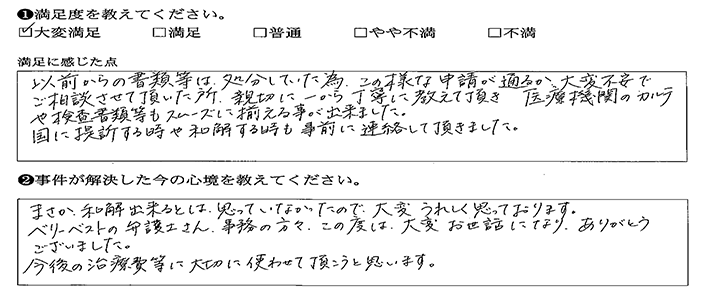 ❶満足度を教えてください。
☑大変満足 □満足 □普通 □やや不満 □不満
満足に感じた点
以前からの書類等は、処分していた為、この様な申請が通るか、大変不安で
ご相談させて頂いた所、親切に一から丁寧に教えて頂き 医療機関のカルテ
や検査書類等もスムーズに揃える事が出来ました。
国に提訴する時や和解する時も事前に連絡して頂きました。
❷事件が解決した今の心境を教えてください。
まさか、和解出来るとは、思っていなかったので、大変うれしく思っております。
ベリーベストの弁護士さん、事務の方々、この度は、大変お世話になり、ありがとう
ございました。
今後の治療費等に大切に使わせて頂こうと思います。